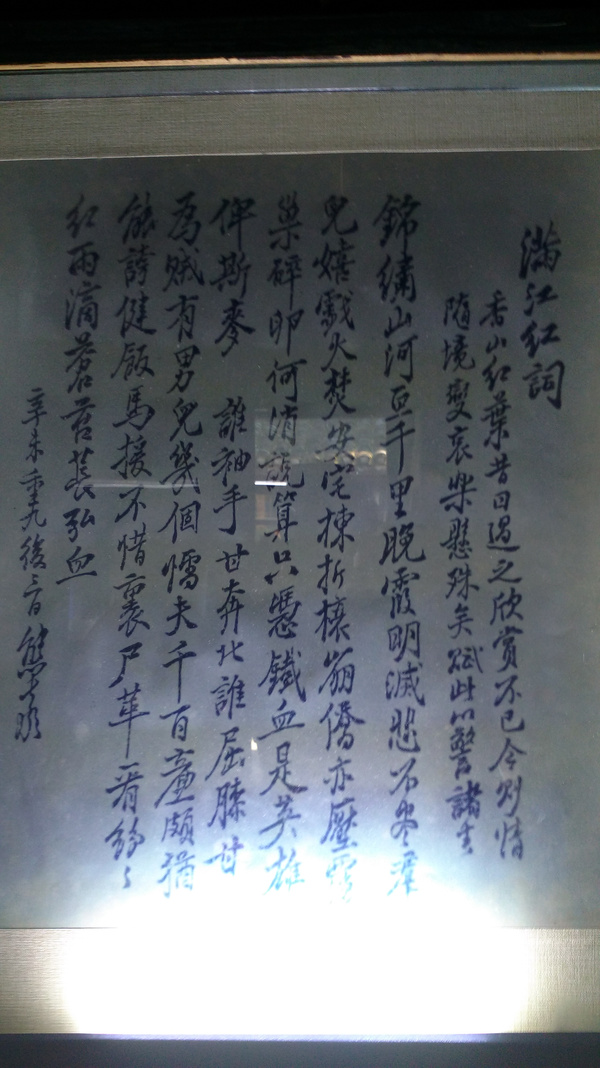 滿江紅詞
香山紅葉昔日過之欣賞不已今則情
隨境變哀樂懸殊矣賦此以警諸生
錦繡山河亘千里晚霞明滅悲不盡羣
兒嬉戲火焚安宅棟折榱崩僑亦壓
巢碎卵何消說算只憑鐵血是英雄
俾斯麥 誰袖手甘奔北誰屈膝甘
為賊有男兒幾個懦夫千百廉頗猶
能誇健飯馬援不惜裹尸革看紛〻
紅雨滴蒼苔萇弘血
辛未重九後二日熊